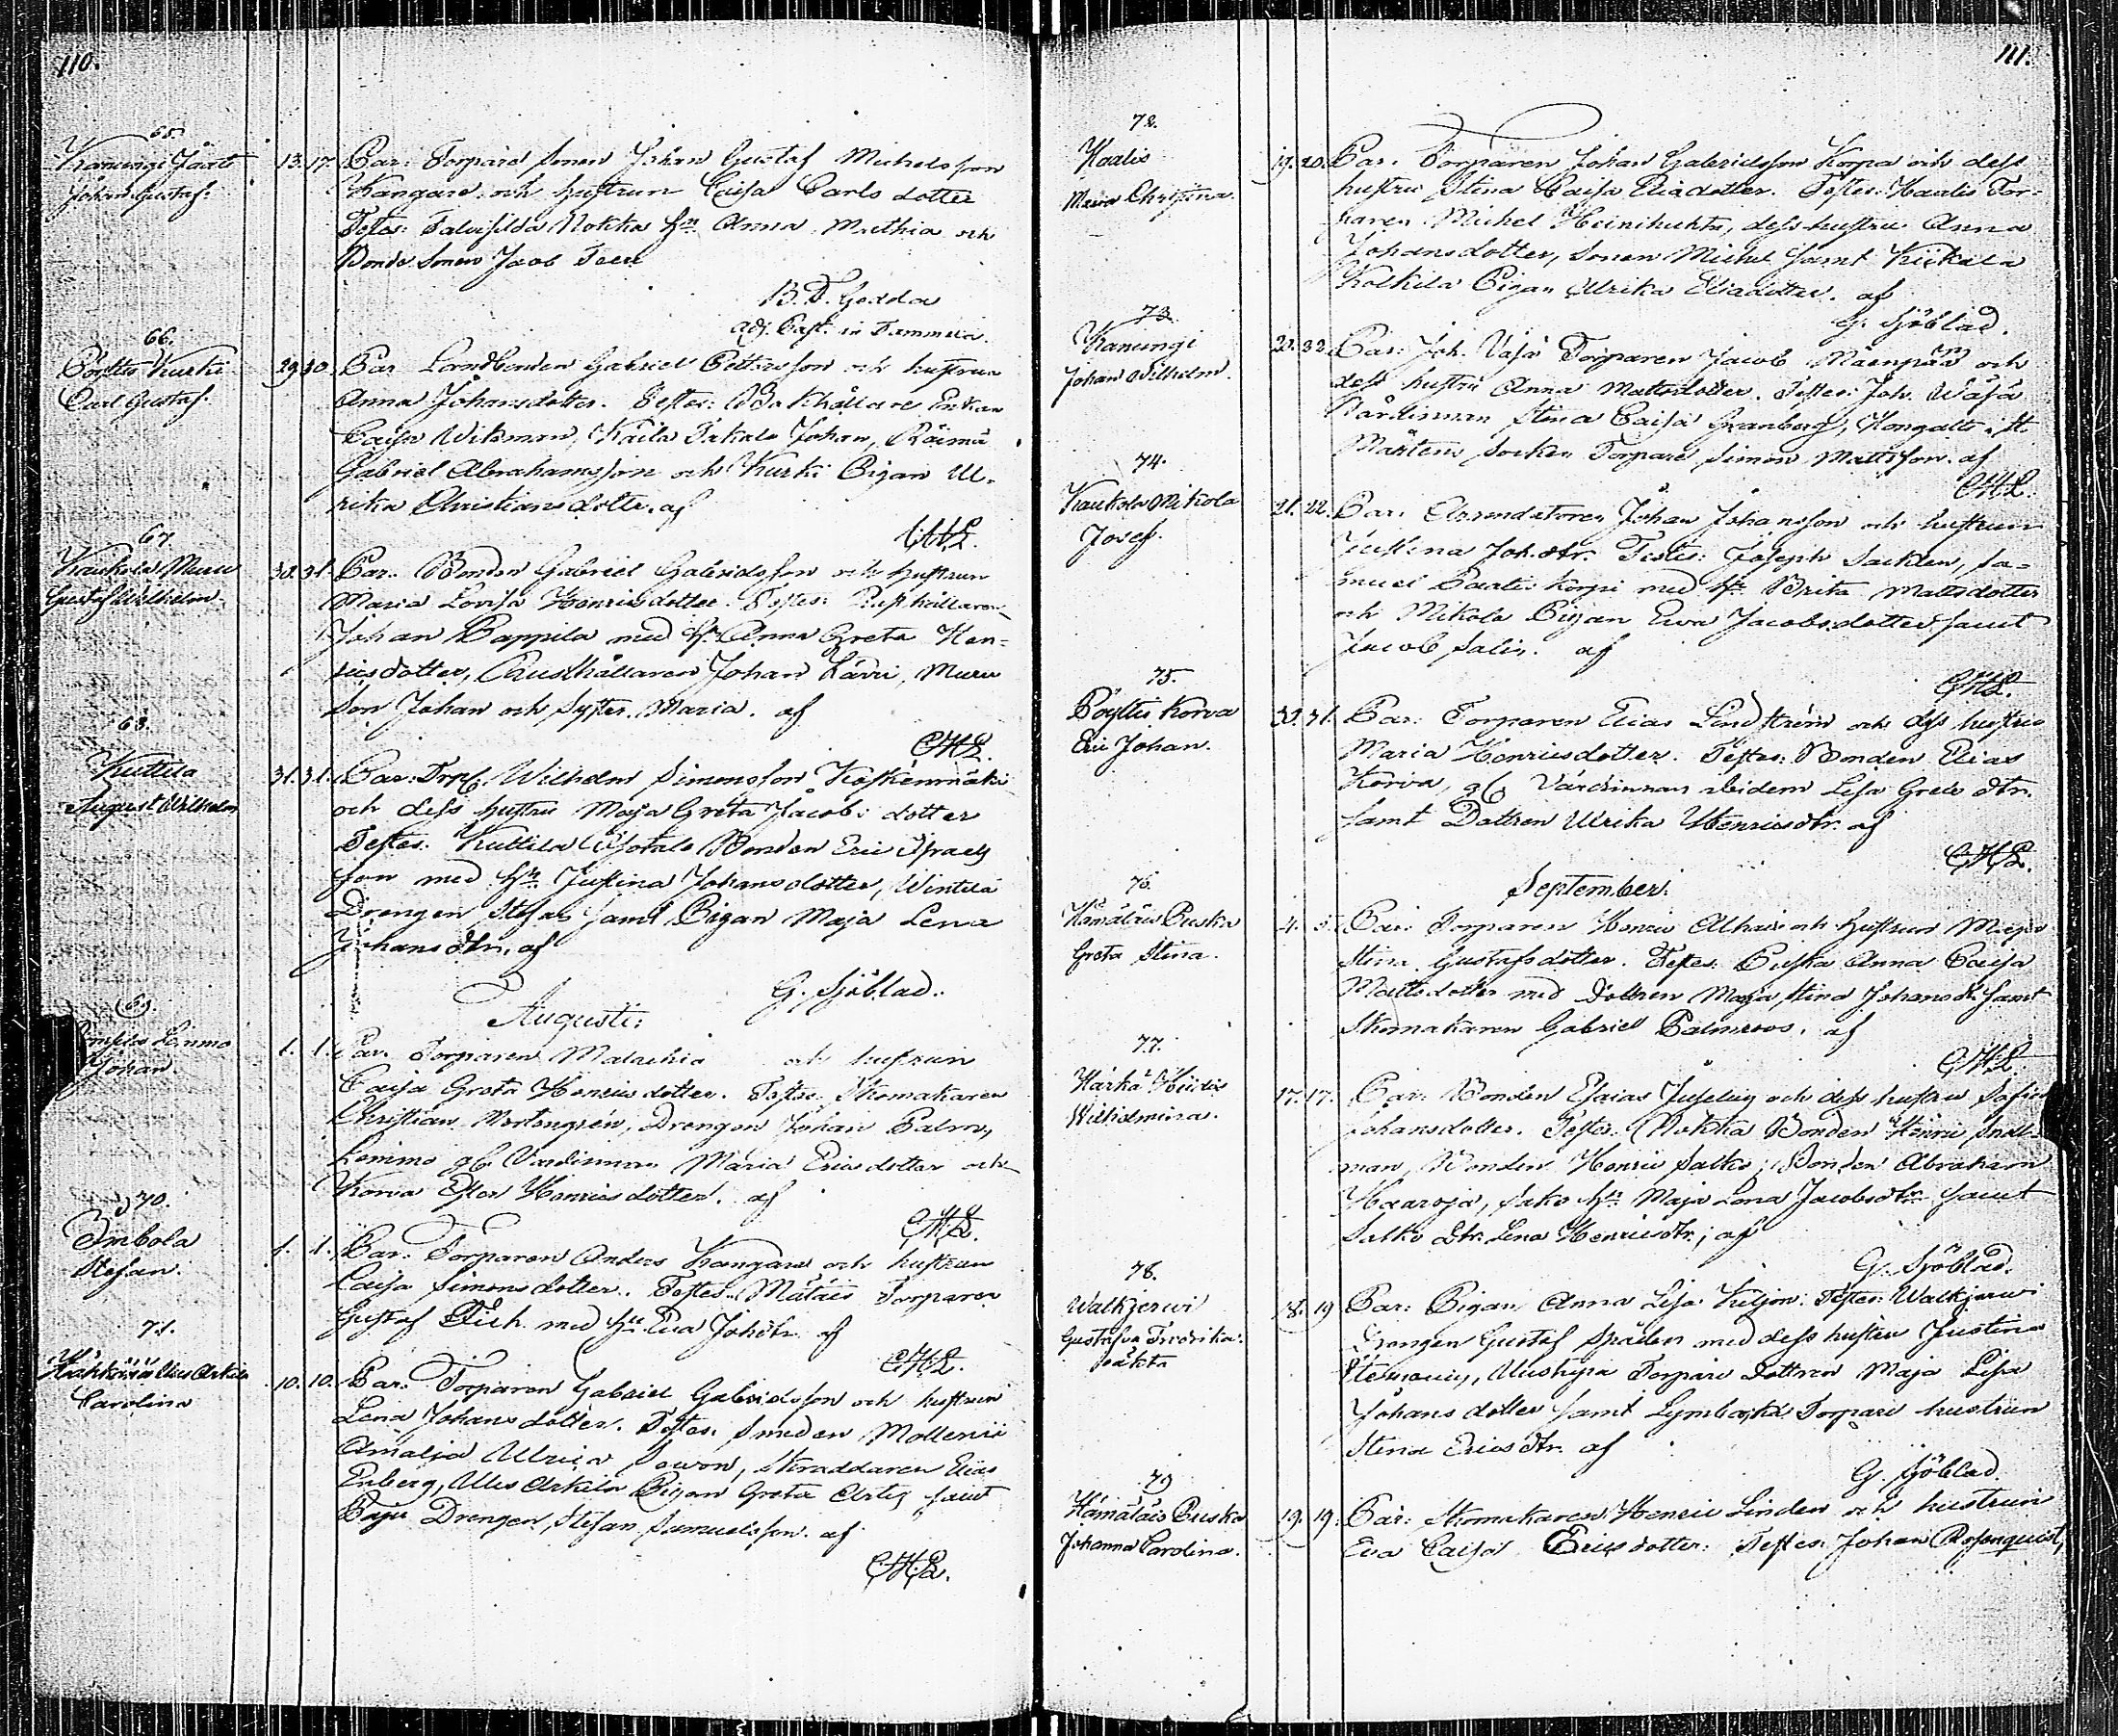 110.
65.
Kanungi Jaat
Johan Gustaf.
13. 17. Par: Torpare Sonen Johan Gustaf Michelsson
Kangare och hustrun Caisa Carls dotter
Testes: Talvisilda Nokka hn Anna Mathia och
Bonde Sonen Jacob
B. F. Gedda
adj. Past. in Tammela.
66.
Pöytis Kurki
Carl Gustaf.
29. 30. Par. Landbonden Gabriel Pettersson och hustrun
Anna Johansdotter. Testes: Enkan
Caisa Wikman, Kaila Johan, Räimä
Gabriel Abrahamsson och Kurki Pigan Ul-
rika Christiansdotter. af
CHL.
67.
Kaukola Muru
Gustaf Wilhelm.
30. 31. Par. Bonden Gabriel Gabrielsson och hustrun
Maria Lovisa Henricsdotter. Testes: Rusthållaren
Johan Pappila med hu Anna Greta Hen-
ricsdotter, Rusthållaren Johan Lavri, Muru
Son Johan och Syster Maria. af
CHL.
68.
Kuttila
August Wilhelm
31. 31. Par: Wilhelm Simonsson Koskenmäki
och dess hustru Maja Greta Jacobs dotter
Testes: Kuttila Bonden Eric Israels
son med hu Justina Johansdotter, Winttilä
Drengen Stefan samt Pigan Maja Lena
Johansdtr. af
G. Sjöblad.
Augusti:
69.
Lemmo
Johan.
1. 1. Par. Torparen Malachia och hustrun
Caisa Greta Henricsdotter. Testes: Skomakaren
Christian Mortengren, Drengen Johan Palm,
Lemmo gl. Värdinnan Maria Ericsdotter och
Korva Ester Henricsdotter. af
CHL.
70.
Imbola
Stefan.
1. 1. Par: Torparen Anders Kangare och hustrun
Caisa Simonsdotter. Testes: Mätäis Torparen
Gustaf med hu Eva Johdtr. af
CHL.
71.
Carolina
10. 10. Par: Torparen Gabriel Gabrielsson och hustrun
Lena Johansdotter. Testes: Smeden Mollerii
Amalia Ulrica Sowon, Skraddaren Elias
Enberg, Ulus Arkila Pigan Greta samt
Drengen Stefan Samuelsson. af
CHL.
111.
72.
Haalis
Maria Christina.
19. 20. Par. Torparen Johan Gabrielsson Korpa och dess
hustru Stina Caisa Eliadotter. Testes: Haalis Tor-
paren Michel Heinihuhta, dess hustru Anna
Johansdotter, Sonen Michel samt Kiikala
Kolkila Pigan Ulrika Eliadotter. af
G. Sjöblad.
73.
Kanungi
Johan Wilhelm.
21. 22. Par: Joh. Vasa Torparen Jacob Mäenpää och
dess hustru Anna Mattsdotter. Testes: Joh. Wäsä
Värdinnan Stina Caisa Granberg, Kongalto i St.
Mårtens Socken Torpare Simon Mattsson. af
CHL.
74.
Kaukola Mikola
Josef.
21. 22. Par: Arrendatoren Johan Johansson och hustrun
Justina Johdtr. Testes: Joseph Sacklen, Sa-
muel Paatis Korpi med hu Brita Mattsdotter
och Mikola Pigan Eva Jacobsdotter samt
Jacob Salin. af
CHL.
75.
Pöytis Korva
Eric Johan.
30. 31. Par: Torparen Elias Lindström och dess hustru
Maria Henricsdotter. Testes: Bonden Elias
Korva, gl. Värdinnan ibidem Lisa Greta dtr.
samt Dottren Ulrika Henricsdtr. af
CHL.
September.
76.
Hämäläis Puska
Greta Stina.
4. 5. Par. Torparen Henric och hustrun Maja
Stina Gustafsdotter. Testes: Puska Anna Caisa
Mattsdotter med Dottren Maja Stina Johansdr samt
Skomakaren Gabriel Palmroos. af
CHL.
77.
Härkä Hiidis
Wilhelmina.
17. 17. Par: Bonden Esaias Juselius och dess hustru Sofia
Johansdotter. Testes: Nokka Bonden Henric Snell-
man, Bonden Henric Salko, Bonden Abraham
Haaroja, Sako hu Maja Lena Jacobsdtr samt
Salko dtr. Lena Henricsdtr; af
G. Sjöblad.
78.
Walkjerwi
Gustafva Fredrika.
oäkta
18. 19 Par: Pigan Anna Lisa Kiljon: Testes: Walkjerwi
Drengen Gustaf Spåden med dess hustru Justina
Torpare Dottren Maja Lisa
Johans dotter samt Torpare hustrun
Stina Ericsdtr. af
G. Sjöblad.
79
Hämäläis Puska
Johanna Carolina.
19. 19. Par: Skomakaren Henric Linden och hustrun
Eva Caisa Ericsdotter: Testes: Johan Rosenqvist,